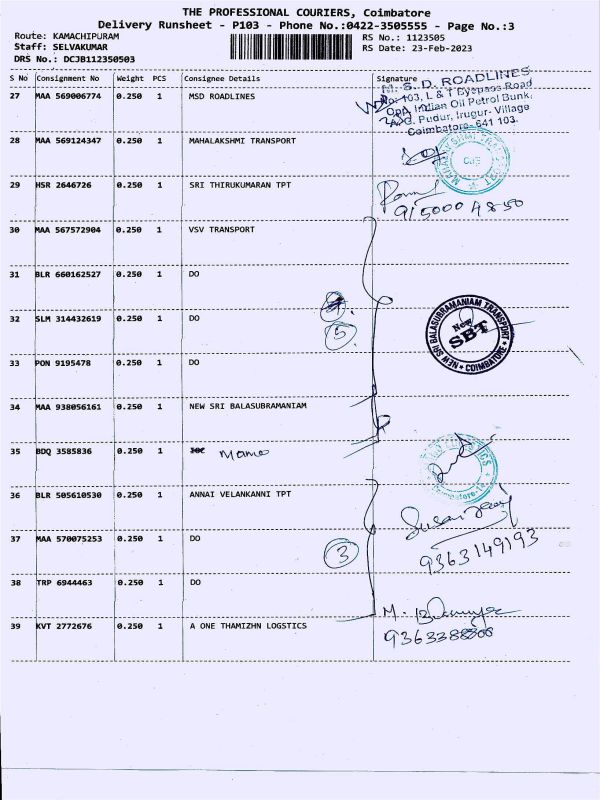 THE PROFESSIONAL COURIERS, Coimbatore
Delivery Runsheet - P103 - Phone No.:0422-3505555 - Page No.:3
Route: KAMACHIPURAM
RS No.: 1123505
Staff: SELVAKUMAR
RS Date: 23-Feb-2023
DRS No.: DCJB112350503
S No Consignment No Weight PCS Consignee Details Signature
27 MAA 569006774 0.250 1 MSD ROADLINES
M. S. D. ROADLINES
No: 103, L & T Byepass Road
Opp. Indian Oil Petrol Bunk,
A.G. Pudur, Irugur- Village
Coimbatore- 641 103.
28 MAA 569124347 0.250 1 MAHALAKSHMI TRANSPORT
29 HSR 2646726 0.250 1 SRI THIRUKUMARAN TPT
915000 4850
30 MAA 567572904 0.250 1 VSV TRANSPORT
31 BLR 660162527 0.250 1 DO
32 SLM 314432619 0.250 1 DO
5
NEW SRI BALASUBRAMANIAM TRANSPORT
New
SBT
COIMBATORE
33 PON 9195478 0.250 1 DO
34 MAA 938056161 0.250 1 NEW SRI BALASUBRAMANIAM
35 BDQ 3585836 0.250 1 Mano
36 BLR 505610530 0.250 1 ANNAI VELANKANNI TPT
37 MAA 570075253 0.250 1 DO
3
9363149193
38 TRP 6944463 0.250 1 DO
39 KVT 2772676 0.250 1 A ONE THAMIZHN LOGSTICS